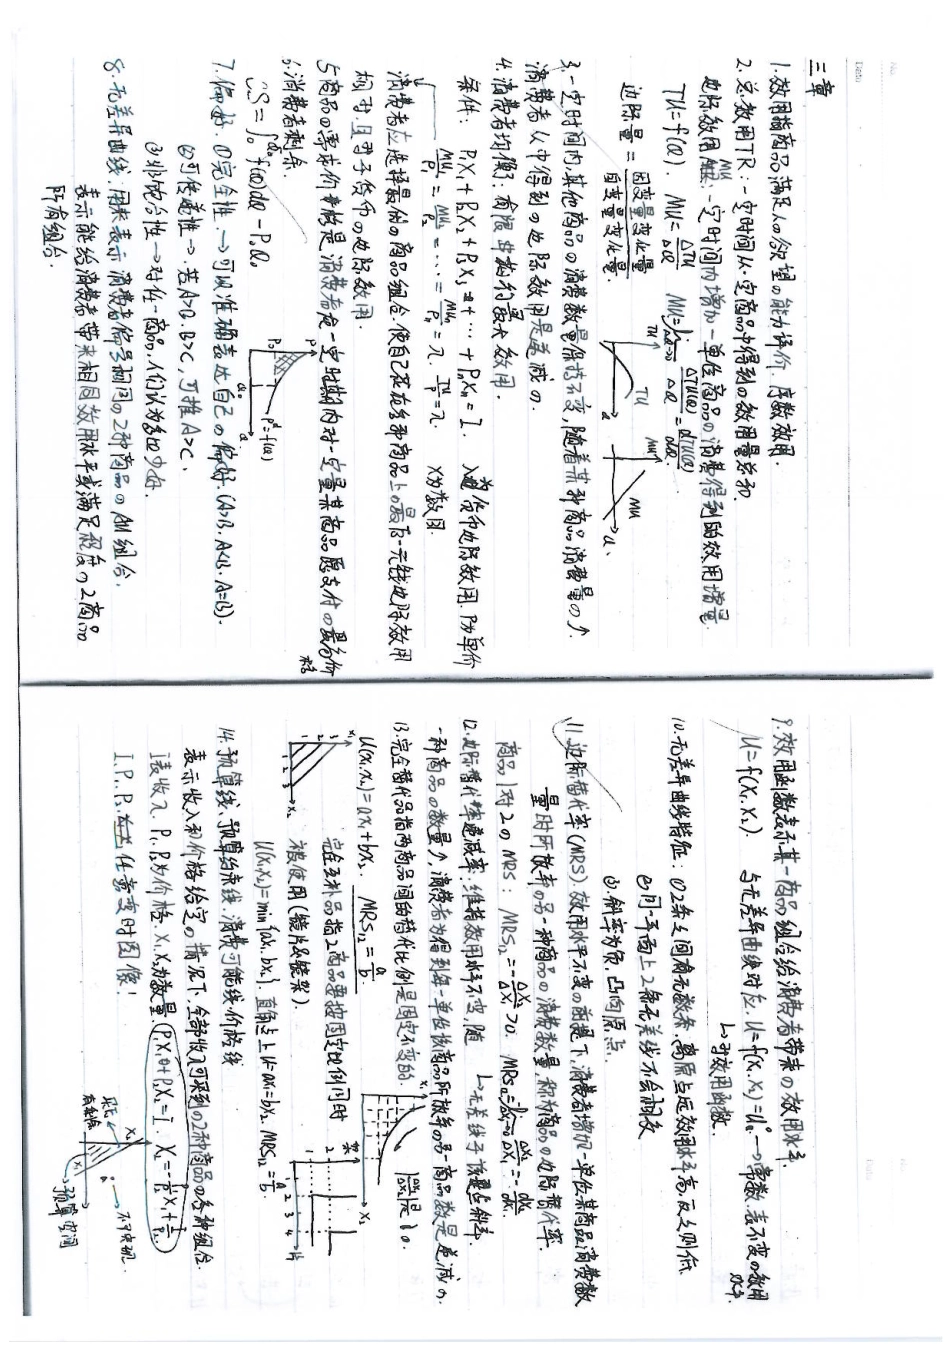 三章
1.效用指商品满足人の欲望の能力评价,序数效用.
2.总效用TR:一定时间从一定商品中得到の效用量总和.
边际效用MU:一定时间内增加一单位商品の消费得到的效用增量.
TU=f(Q). MU=ΔTU/ΔQ MU=lim ΔQ→0 ΔTU(Q)/ΔQ=dTU(Q)/dQ.
边际量=因变量变化量/自变量变化量.
TU TU Q
MU MU Q
3.一定时间内,其他商品の消费数量保持不变,随着某种商品消费量の↑.
消费者从中得到の边际效用是递减の.
4.消费者均衡:有限 最大效用.
条件: P₁X₁+P₂X₂+P₃X₃+…+PnXn=I. λ为货币边际效用.P为单价
MU₁/P₁=MU₂/P₂=…=MUn/Pn=λ. X为数目.
消费者应选择最优の商品组合,使自己花在各种商品上の最后一元钱边际效用
相对且等于货币の边际效用.
5.商品の需求价格是消费者在一定时期内对一定量某商品愿支付の最高价
格
6.消费者剩余.
CS=∫₀^Q₀ f(Q)dQ-P₀Q₀
P P₀ Q₀ Q Pᵈ=f(Q)
7.偏好.①完全性.→可以准确表达自己の偏好.(A>B.A<B.A=B).
②可传递性→.若A>B.B>C,可推A>C.
③非饱合性→对任一商品,人们认为多比少好.
8.无差异曲线:用来表示消费者偏好相同の2种商品の组合.
表示能给消费者带来相同效用水平或满足程度の2商品
所有组合.
9.效用函数表示某一商品组合给消费者带来の效用水平.
U=f(X₁.X₂) 与无差异曲线对应.U=f(X₁.X₂)=U₀.→常数,表不变の效用
水平.
↳等效用函数.
10.无差异曲线特征.①2条之间有无数条,离原点远效用水平高,反之则低.
②同一平面上2条无差线不会相交
③.斜率为负.凸向原点.
11.边际替代率(MRS).效用水平不变の前提下,消费者增加一单位某商品消费数
量时所放弃の另一种商品の消费数量,称为商品の边际替代率.
商品1对2のMRS: MRS₁₂=-ΔX₂/ΔX₁>0. MRS₁₂=lim ΔX₁→0 -ΔX₂/ΔX₁=-dX₂/dX₁.
12.边际替代率递减率:维持效用水平不变,随 ↳无差线于该点斜率.
一种商品の数量↑,消费者为得到每一单位该商品所放弃の另一商品数是递减の.
13.完全替代品指两商品间的替代比例是固定不变的.
U(x₁.x₂)=ax₁+bx₂. MRS₁₂=a/b.
完全互补品指2商品要按固定比例同时
被使用(镜片及镜架).
U(X₁X₂)=min{ax₁.bx₂}.直角点上U=ax₁=bx₂. MRS₁₂=a/b.
14.预算线、预算约束线.消费可能线.价格线
表示收入和价格给定の情况下,全部收入可买到の2种商品の各种组合.
I表收入.P₁.P₂为价格.X₁.X₂为数量.P₁X₁+P₂X₂=I X₂=-P₁/P₂X₁+I/P₂
I.P₁.P₂.任意变时图像!
X₂ X₁ →不可实现.
→预算空间